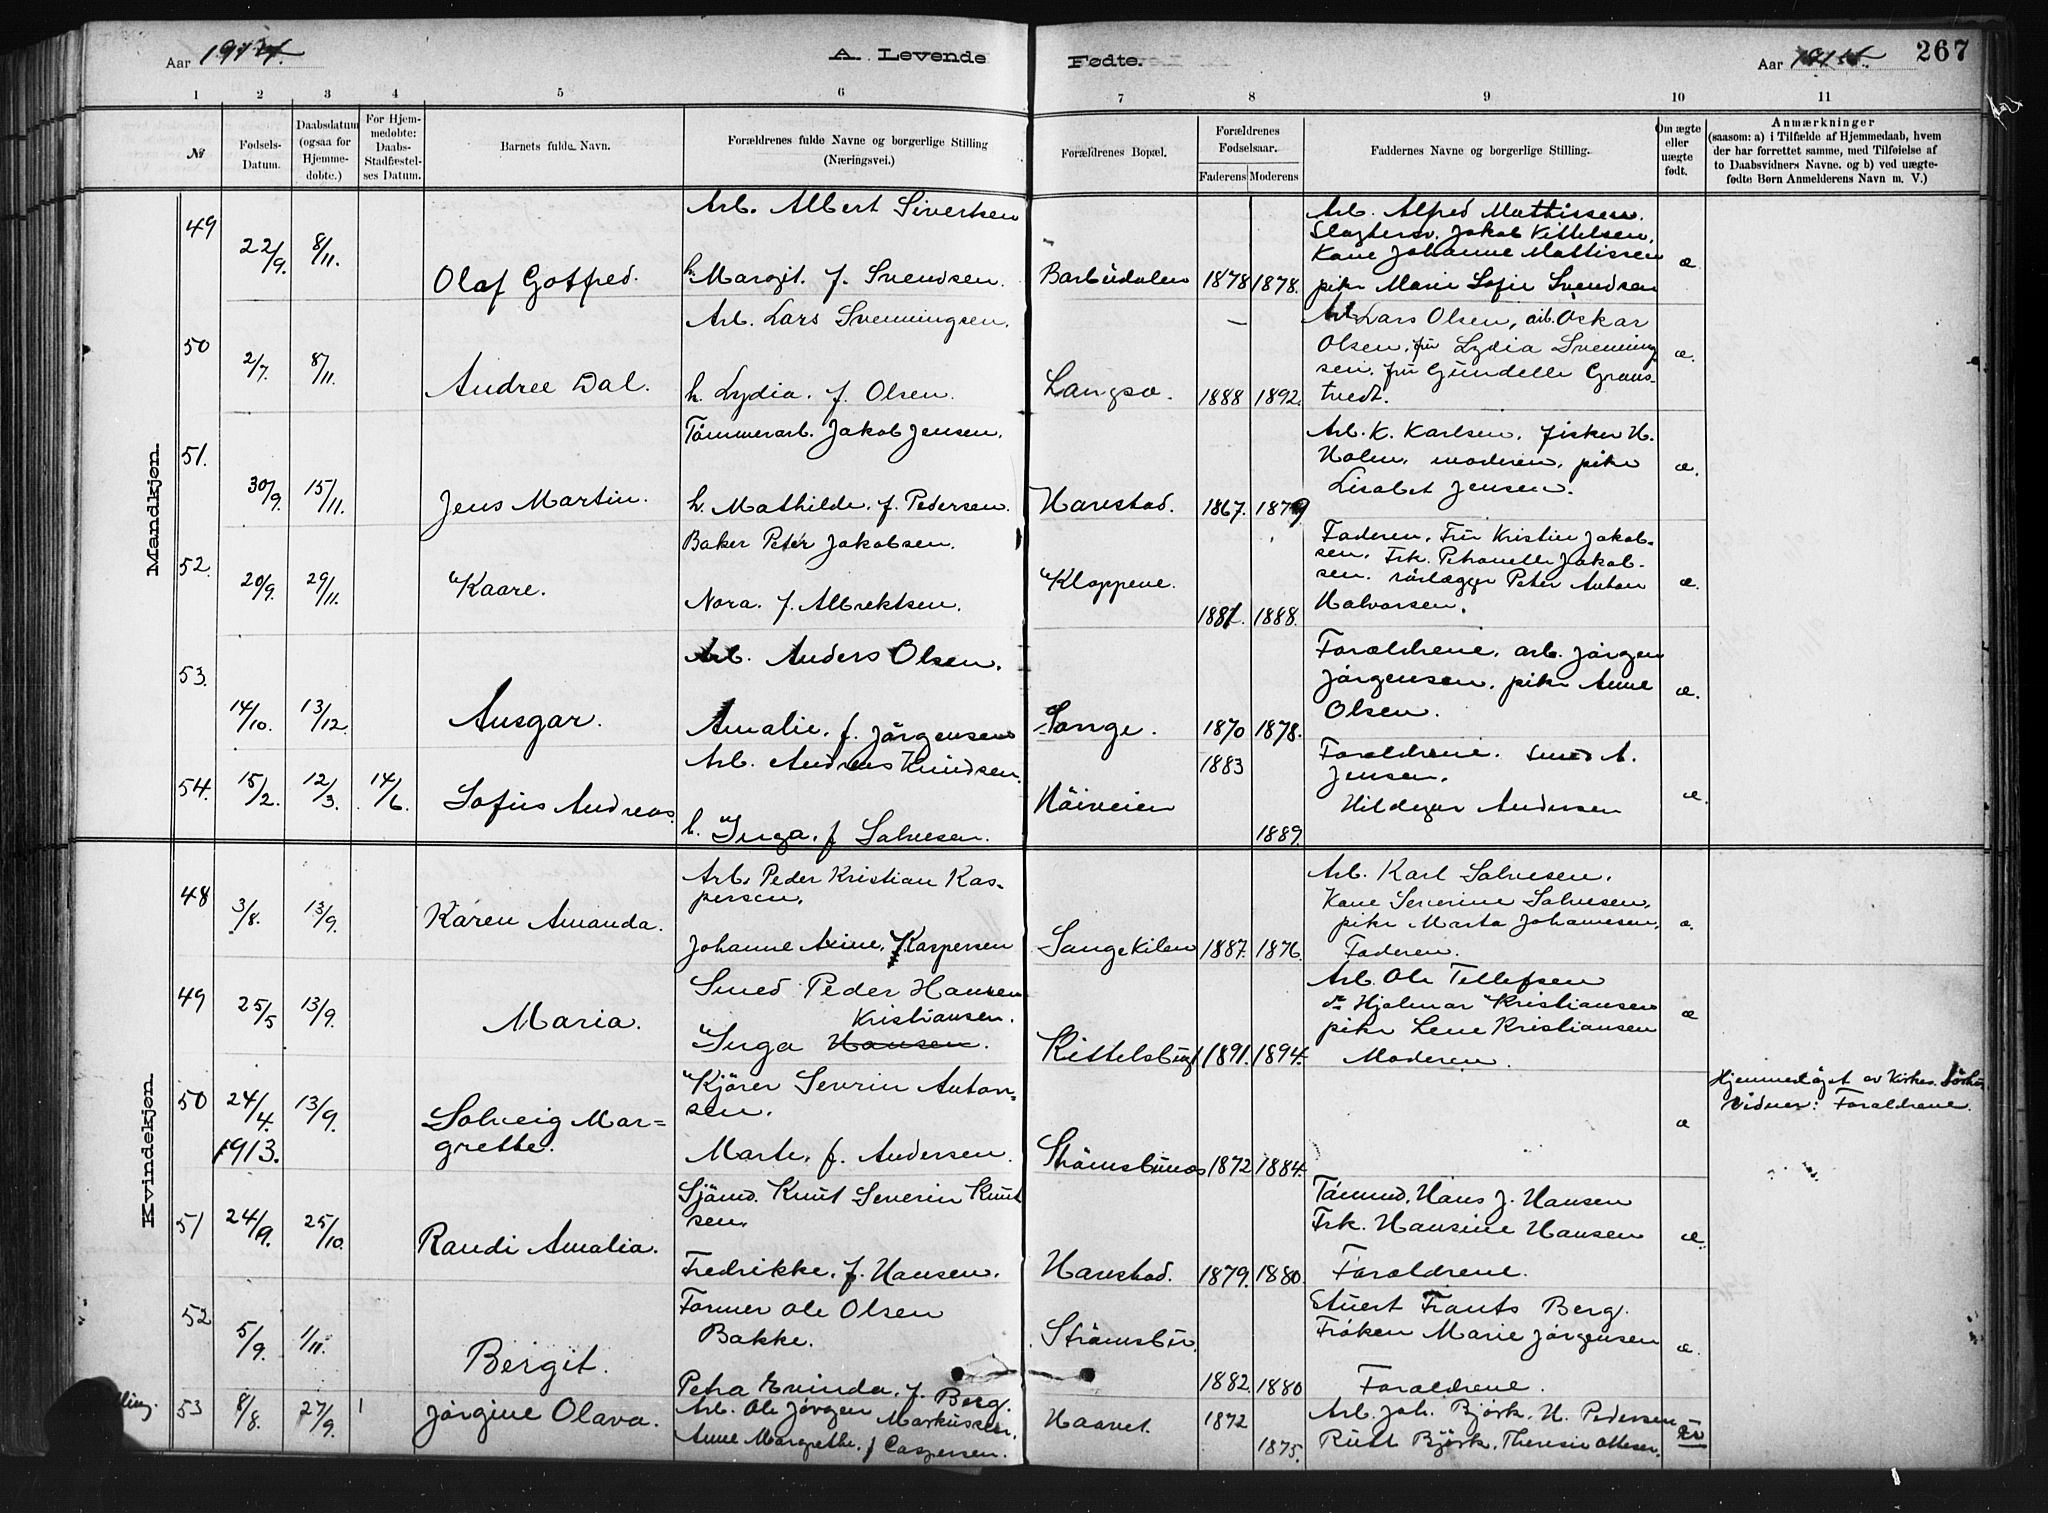 Aar 1914.
A. Levende
Fødte.
Aar 1914.
267
1 2 3 4 5 6 7 8 9 10 11
№
Fødsels-
Datum.
Daabsdatum
(ogsaa for
Hjemme-
døbte.)
For Hjem-
medøbte:
Daabs-
Stadfæstel-
ses Datum.
Barnets fulde Navn.
Forældrenes fulde Navne og borgerlige Stilling
(Næringsvei.)
Forældrenes Bopæl.
Forældrenes
Fødselsaar.
Faderens Moderens
Faddernes Navne og borgerlige Stilling.
Om ægte
eller
uægte
født.
Anmærkninger
(saasom: a) i Tilfælde af Hjemmedaab, hvem
der har forrettet samme, med Tilføielse af
to Daabsvidners Navne. og b) ved uægte-
fødte Børn Anmelderens Navn m. V.)
Mandkjøn.
49
22/9.
8/11.
Olaf Gotfred.
Arb. Albert Sivertsen
h. Margit. f. Svendsen.
Barbudalen
1878 1878.
Arb. Alfred Mathissen.
Slagtersv. Jakob Kittelsen.
Kone Johanne Mathissen
pike Marie Sofie Svendsen
æ
50
2/7.
8/11.
Andree Dal.
Arb. Lars Svenningsen.
h. Lydia. f. Olsen.
Langsæ.
1888 1892.
Arb Lars Olsen, arb. Oskar
Olsen. fru Lydia Svenning
sen. fru Gundelle Grans-
tvedt.
æ.
51.
30/9.
15/11.
Jens Martin.
Tømmerarb. Jakob Jensen.
h. Mathilde. f. Pedersen.
Harestad.
1867. 1879
Arb. K. Karlsen. fisker H.
Holen. moderen. pike
Lisabet Jensen.
æ.
52.
20/9.
29/11.
Kaare.
Baker Peter Jakobsen.
Nora. f. Albrektsen.
Kloppene.
1881. 1888.
Faderen. Fru Kristin Jakob-
sen. Frk. Petronelle Jakob-
sen. rørlægger Peter Anton
Halvorsen.
æ.
53.
14/10.
13/12.
Ansgar.
Arb. Anders Olsen.
Amalie. f. Jørgensen
Songe.
1870 1878.
Forældrene. arb. Jørgen
Jørgensen. pike Anne
Olsen.
æ.
54.
15/2.
12/3.
14/6.
Sofus Andreas.
Arb. Andreas Knudsen.
h. Inga. f Salvesen.
Høiveien
1883
1889.
Forældrene. Smed A.
Jensen.
Hildegar Andersen
æ.
Kvindekjøn.
48
3/8.
13/9.
Karen Amanda.
Arb. Peder Kristian Kas-
persen.
Johanne Axine. f. Kaspersen
Songekilen
1887. 1876.
Arb. Karl Salvesen.
Kone Severine Salvesen.
pike Marta Johannesen.
Faderen.
æ.
49
25/5
13/9.
Maria.
Smed Peder Hansen
Kristiansen.
Inga Hansen.
Kittelsbugt
1891. 1894.
Arb. Ole Tellefsen
Hjalmar Kristiansen
pike Lene Kristiansen
Moderen.
æ
50
24/4.
1913.
13/9.
Solveig Mar=
grethe.
Kjører Sevrin Anton=
sen.
Marte. f. Andersen.
Strømsbunes
1872 1884.
æ
Hjemmedøpt av Kirkes.
Vidner: Forældrene.
51
24/9.
25/10.
Randi Amalia.
Sjømd. Knut Severin Knut
sen.
Fredrikke. f. Hansen.
Harestad.
1879. 1880.
Tømmd. Hans J. Hansen
Frk. Hansine Hansen
Forældrene.
æ.
52
5/9.
1/11.
Bergit.
Former Ole Olsen
Bakke.
Petra Evinda. f. Berg.
Strømsbu.
1882. 1880
Stuert Frants Berg.
Frøken Marie Jørgensen
Forældrene.
æ.
53
8/8.
27/9.
Jørgine Olava.
Arb. Ole Jørgen Markussen.
Anne Margrethe. f Caspersen.
Haavet.
1872
1875.
Arb. Joh. Bjørk. H. Pedersen
Rutt Bjørk. Theresie Ottesen.